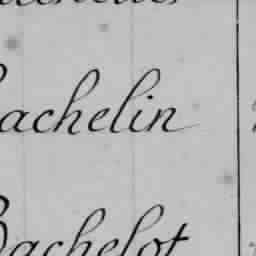 Bachelin
Bachelot